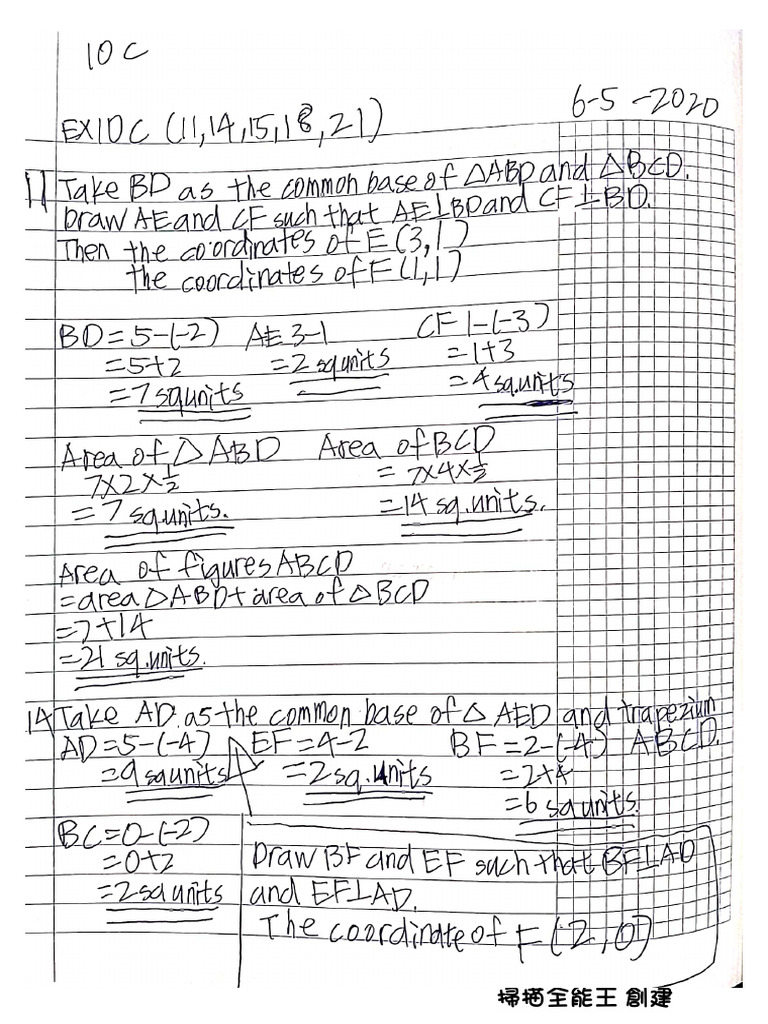 10C
6-5-2020
EX10C (11,14,15,18,21)
11 Take BD as the common base of △ABD and △BCD.
Draw AE and CF such that AE⊥BD and CF⊥BD.
Then the coordinates of E(3,1)
the coordinates of F(1,1)
BD=5-(-2) AE 3-1 CF 1-(-3)
=5+2 =2 sq units =1+3
=7 sq units =4 sq.units
Area of △ABD Area of BCD
7×2×½ = 7×4×½
=7 sq.units. =14 sq.units.
Area of figures ABCD
=area △ABD+area of △BCD
=7+14
=21 sq.units.
14 Take AD as the common base of △AED and trapezium
ABCD.
AD=5-(-4) EF=4-2 BF=2-(-4)
=9 sq units =2 sq.units =2+4
=6 sq units
BC=0-(-2)
=0+2
=2 sq units
Draw BF and EF such that BF⊥AD
and EF⊥AD.
The coordinate of F(2,0)
掃描全能王 創建